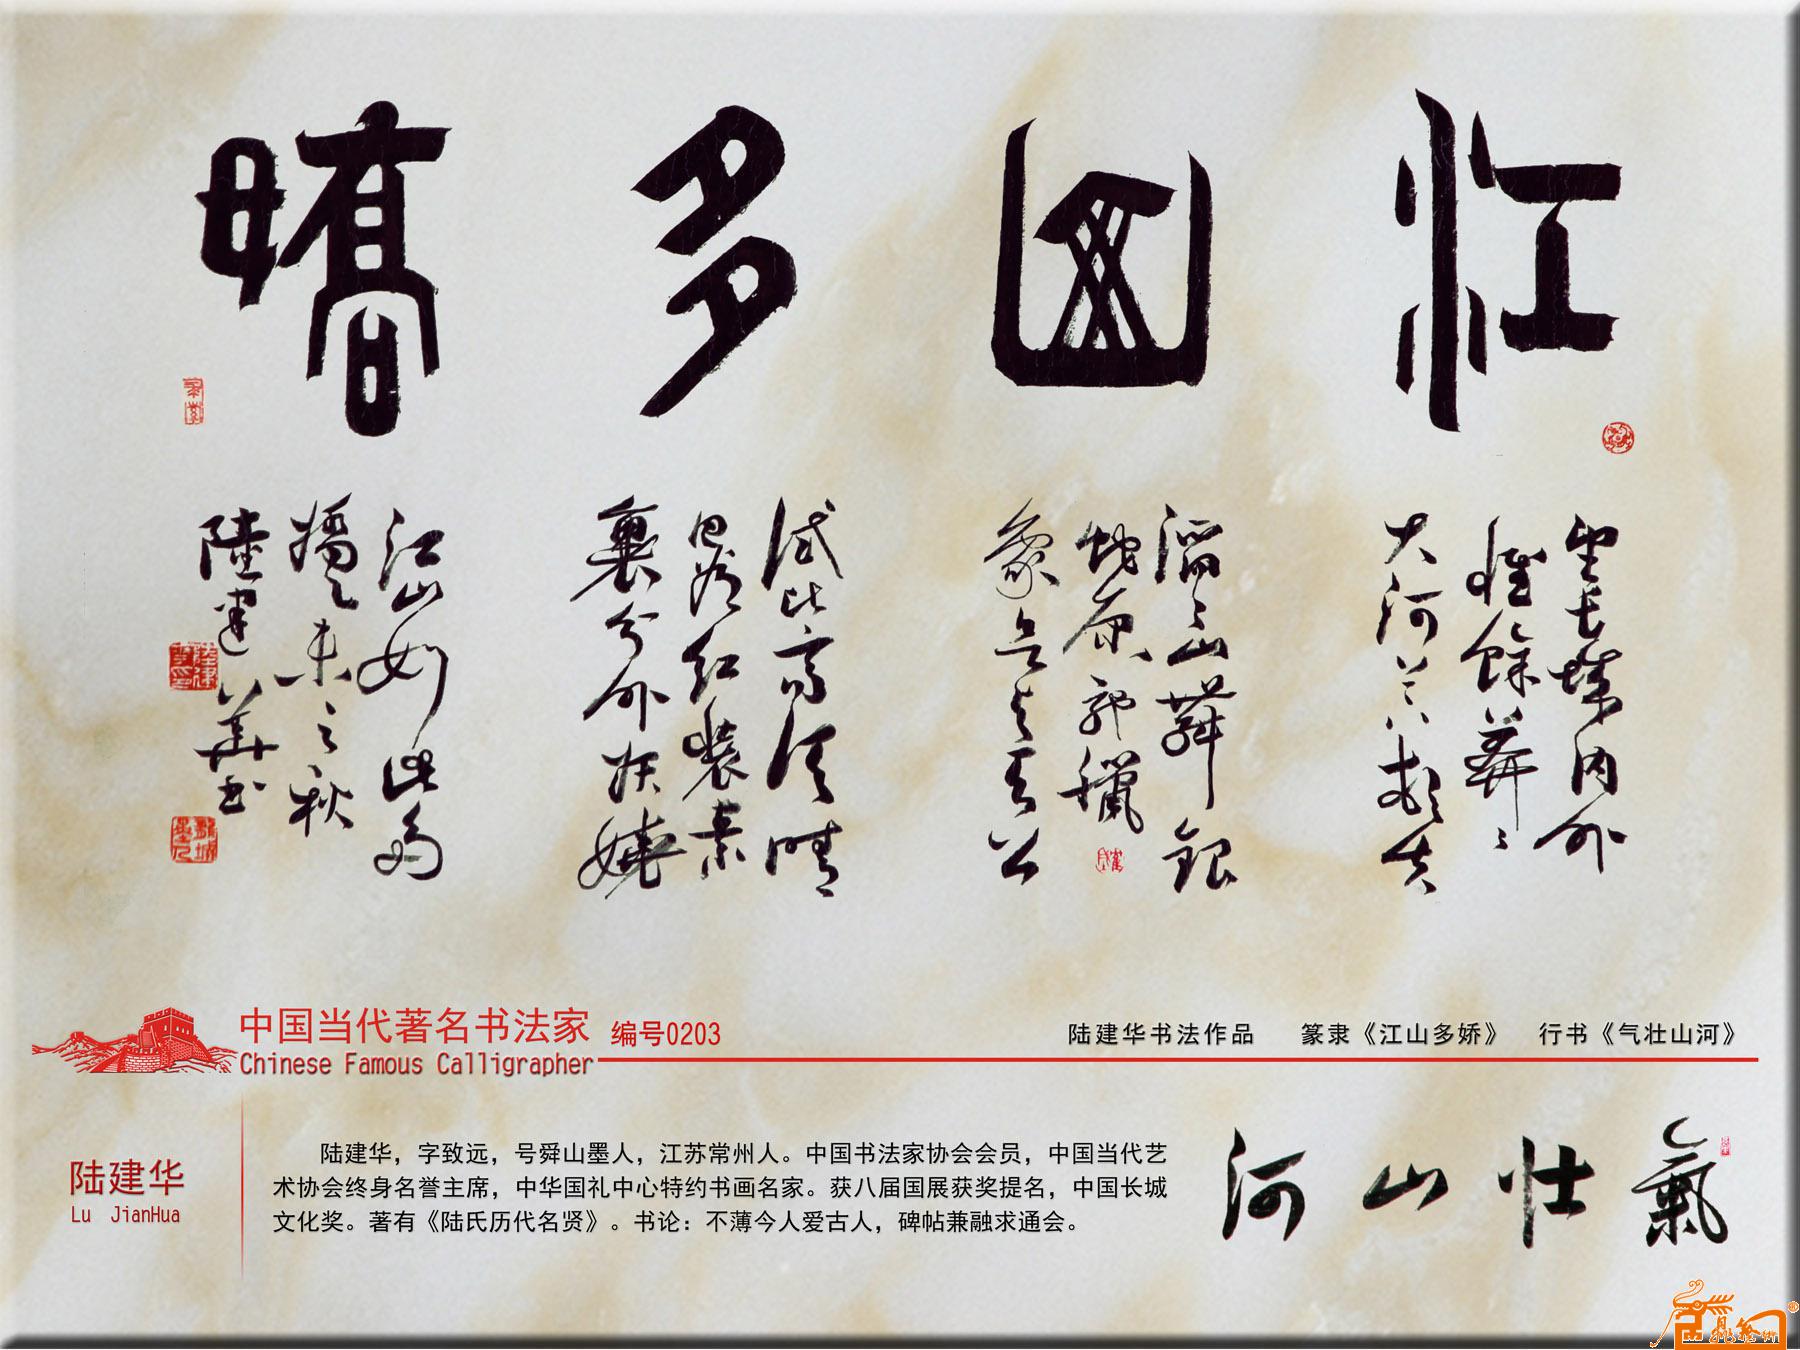 江山多嬌
望長城内外
惟餘莽々
大河上下頓失
滔々山舞銀
蛇原馳蠟
象欲与天公
試比高須晴
日看紅裝素
裹分外妖嬈
江山如此多
嬌乙未之秋
陸建華书
中国当代著名书法家 编号0203
Chinese Famous Calligrapher
陆建华书法作品 篆隶《江山多娇》 行书《气壮山河》
陆建华
Lu JianHua
陆建华，字致远，号舜山墨人，江苏常州人。中国书法家协会会员，中国当代艺
术协会终身名誉主席，中华国礼中心特约书画名家。获八届国展获奖提名，中国长城
文化奖。著有《陆氏历代名贤》。书论：不薄今人爱古人，碑帖兼融求通会。
氣壮山河